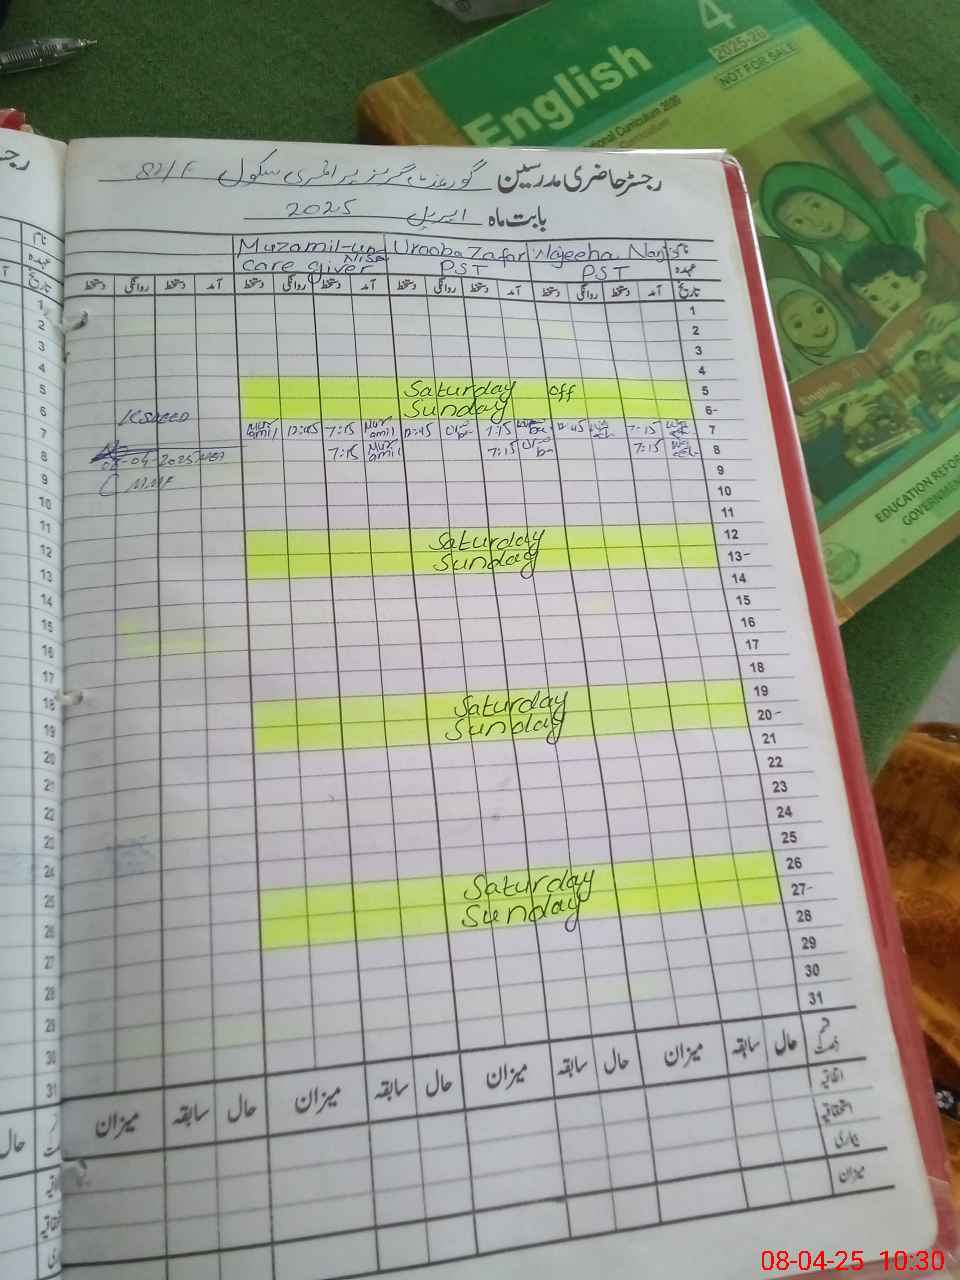 رجسٹر حاضری مدرسین گورنمنٹ گرلز پرائمری سکول 82/F
بابت ماہ اپریل 2025
نام Wajeeha Urooba Zafar Muzamil-un-Nisa
عہدہ PST PST care giver
تاریخ آمد دستخط روانگی دستخط آمد دستخط روانگی دستخط آمد دستخط روانگی دستخط آمد دستخط روانگی دستخط
1
2
3
4
5 Saturday off
6 Sunday
7 7:15 12:45 7:15 12:45 7:15 12:45
8 7:15 7:15 7:15
08-04-2025
9
10
11
12 Saturday
13 Sunday
14
15
16
17
18
19 Saturday
20 Sunday
21
22
23
24
25
26 Saturday
27 Sunday
28
29
30
31
حال سابقہ میزان حال سابقہ میزان حال سابقہ میزان حال سابقہ میزان
اتفاقیہ
استحقاقیہ
بیماری
میزان
English
4
2025-26
NOT FOR SALE
Curriculum 2020
EDUCATION REFOR
GOVERNMEN
08-04-25 10:30